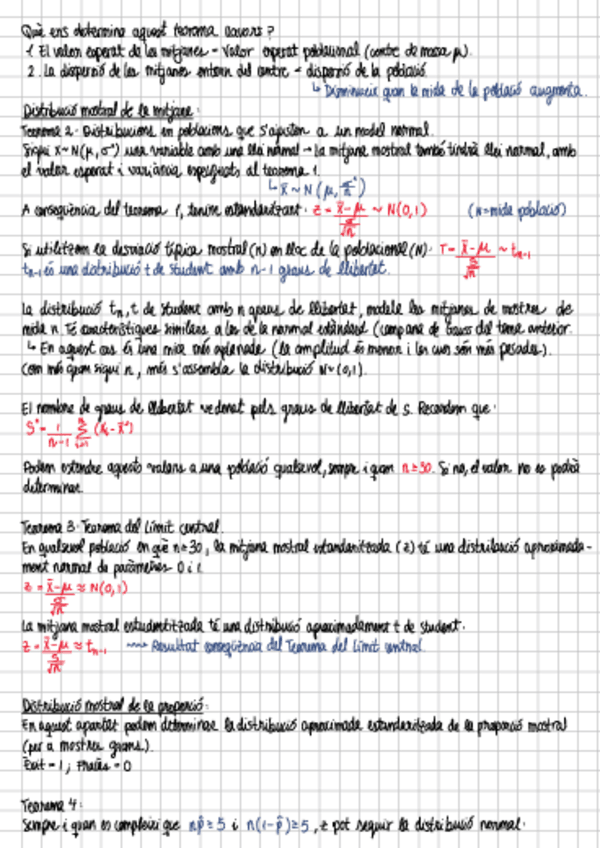 Què ens determina aquest teorema llavors?
1. El valor esperat de les mitjanes = Valor esperat poblacional (centre de massa μ).
2. La dispersió de les mitjanes entorn del centre = dispersió de la població.
↳ Disminueix quan la mida de la població augmenta.
Distribució mostral de la mitjana:
Teorema 2. Distribucions en poblacions que s'ajusten a un model normal.
Sigui X~N(μ,σ²) una variable amb una llei normal → La mitjana mostral també tindrà llei normal, amb
el valor esperat i variància especificats al teorema 1.
↳ X̄ ~ N(μ, σ²/n)
A conseqüència del teorema 1, tenim estandarditzant: Z = (X̄-μ)/(σ/√n) ~ N(0,1) (N=mida població)
Si utilitzem la desviació típica mostral (n) en lloc de la poblacional (N): T = (X̄-μ)/(S/√n) ~ tn-1
tn-1 és una distribució t de student amb n-1 graus de llibertat.
La distribució tn, t de student amb n graus de llibertat, modela les mitjanes de mostres de
mida n. Té característiques similars a les de la normal estàndard (campana de Gauss del tema anterior.
↳ En aquest cas és una mica més aplanada (la amplitud és menor i les cues són més pesades).
Com més gran sigui n, més s'assembla la distribució N~(0,1).
El nombre de graus de llibertat ve donat pels graus de llibertat de S. Recordem que:
S² = 1/(n-1) Σ (Xi - X̄²)
Podem estendre aquests valors a una població qualsevol, sempre i quan n≥30. Si no, el valor no es podrà
determinar.
Teorema 3. Teorema del Límit central.
En qualsevol població en què n≥30, la mitjana mostral estandaritzada (z) té una distribució aproximada-
ment normal de paràmetres 0 i 1.
z = (X̄-μ)/(σ/√n) ≈ N(0,1)
La mitjana mostral estudentitzada té una distribució aproximadament t de student.
z = (X̄-μ)/(S/√n) ≈ tn-1 ⟿ Resultat conseqüència del Teorema del Límit central.
Distribució mostral de la proporció:
En aquest apartat podem determinar la distribució aproximada estandaritzada de la proporció mostral
(per a mostres grans).
Èxit = 1 ; Fracàs = 0
Teorema 4:
Sempre i quan es compleixi que np̂≥5 i n(1-p̂)≥5, z pot seguir la distribució normal.